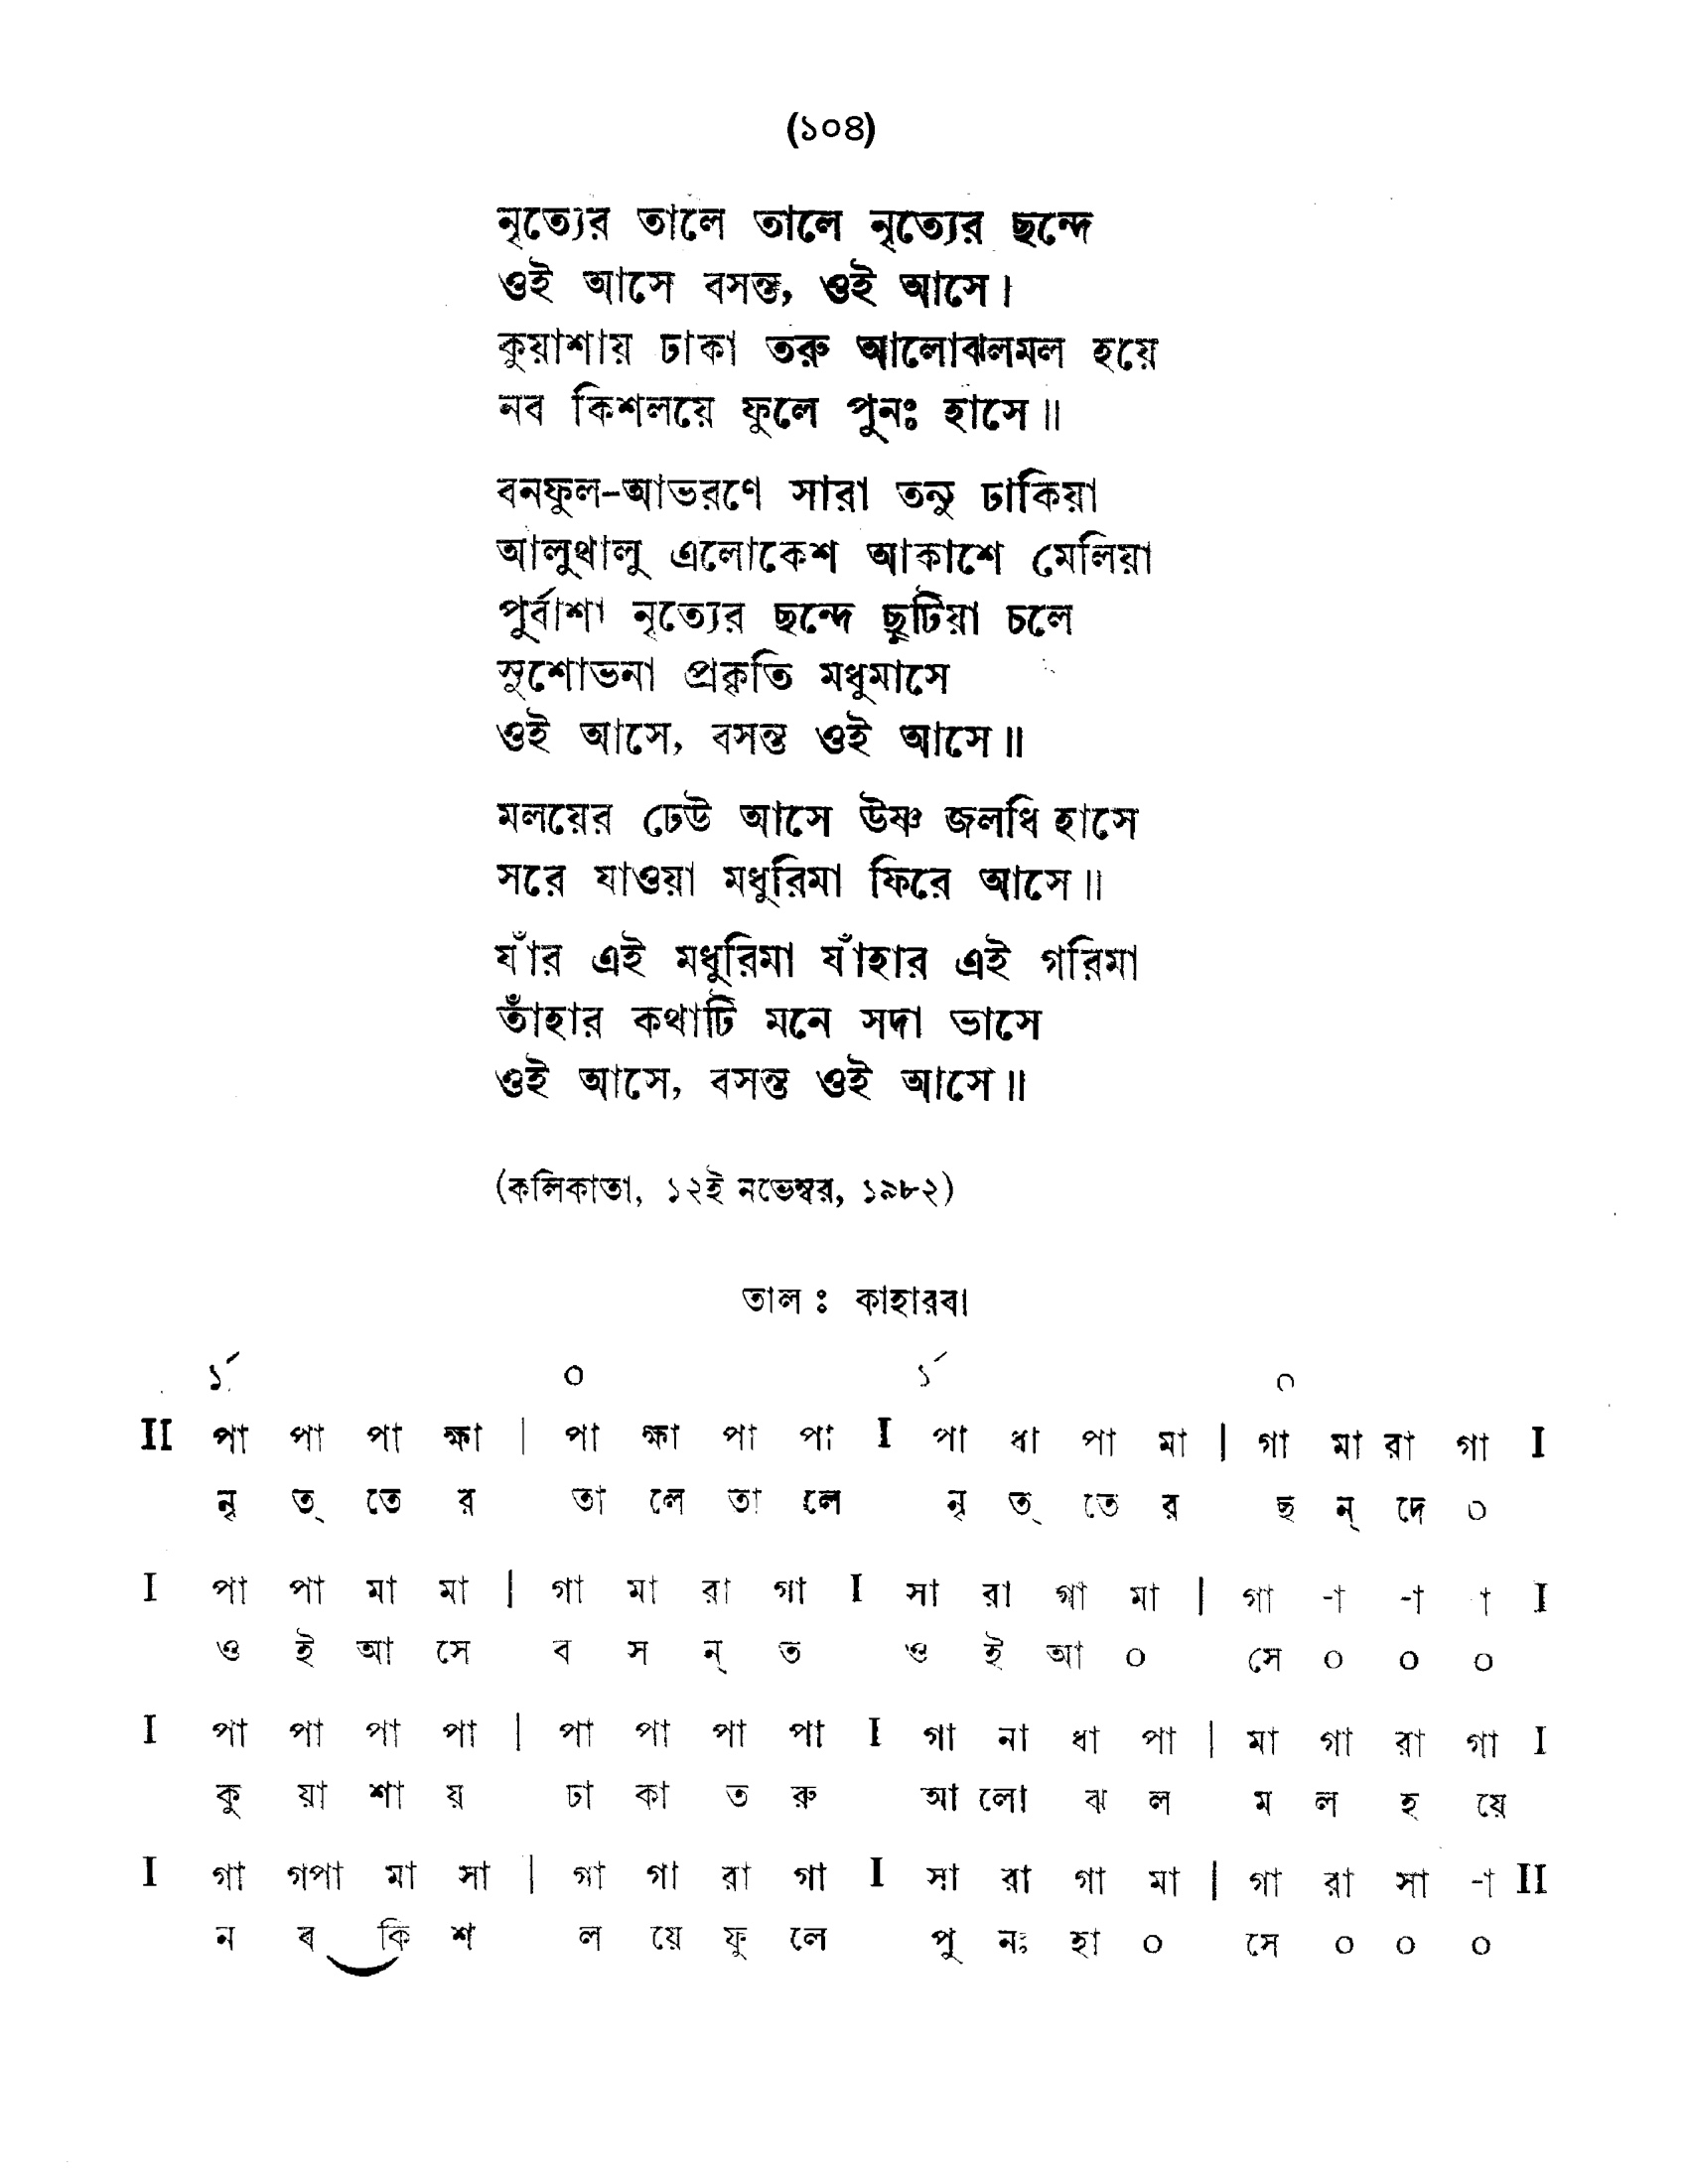 (১০৪)
নৃত্যের তালে তালে নৃত্যের ছন্দে
ওই আসে বসন্ত, ওই আসে।
কুয়াশায় ঢাকা তরু আলোঝলমল হয়ে
নব কিশলয়ে ফুলে পুনঃ হাসে॥
বনফুল-আভরণে সারা তনু ঢাকিয়া
আলুথালু এলোকেশ আকাশে মেলিয়া
পুর্বাশা নৃত্যের ছন্দে ছুটিয়া চলে
সুশোভনা প্রকৃতি মধুমাসে
ওই আসে, বসন্ত ওই আসে॥
মলয়ের ঢেউ আসে উষ্ণ জলধি হাসে
সরে যাওয়া মধুরিমা ফিরে আসে॥
যাঁর এই মধুরিমা যাঁহার এই গরিমা
তাঁহার কথাটি মনে সদা ভাসে
ওই আসে, বসন্ত ওই আসে॥
(কলিকাতা, ১২ই নভেম্বর, ১৯৮২)
তাল ঃ কাহারবা
১´ ০ ১´ ০
II পা পা পা ক্ষা | পা ক্ষা পা পা I পা ধা পা মা | গা মা রা গা I
নৃ ত্ তে র তা লে তা লে নৃ ত্ তে র ছ ন্ দে ০
I পা পা মা মা | গা মা রা গা I সা রা গা মা | গা -া -া া I
ও ই আ সে ব স ন্ ত ও ই আ ০ সে ০ ০ ০
I পা পা পা পা | পা পা পা পা I গা না ধা পা | মা গা রা গা I
কু য়া শা য় ঢা কা ত রু আ লো ঝ ল ম ল হ য়ে
I গা গপা মা সা | গা গা রা গা I সা রা গা মা | গা রা সা -া II
ন ব কি শ ল য়ে ফু লে পু নঃ হা ০ সে ০ ০ ০